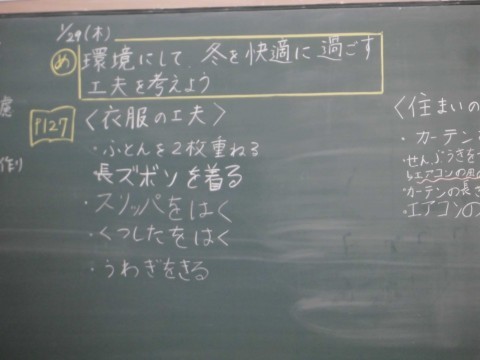 1/29(木)
め 環境にして、冬を快適に過ごす
工夫を考えよう
P127 〈衣服の工夫〉
・ふとんを2枚重ねる
長ズボンを着る
・スリッパをはく
・くつしたをはく
・うわぎをきる
作り
〈住まいの
・カーテン
・せんぷうきを
・カーテンの長さ
・エアコンの